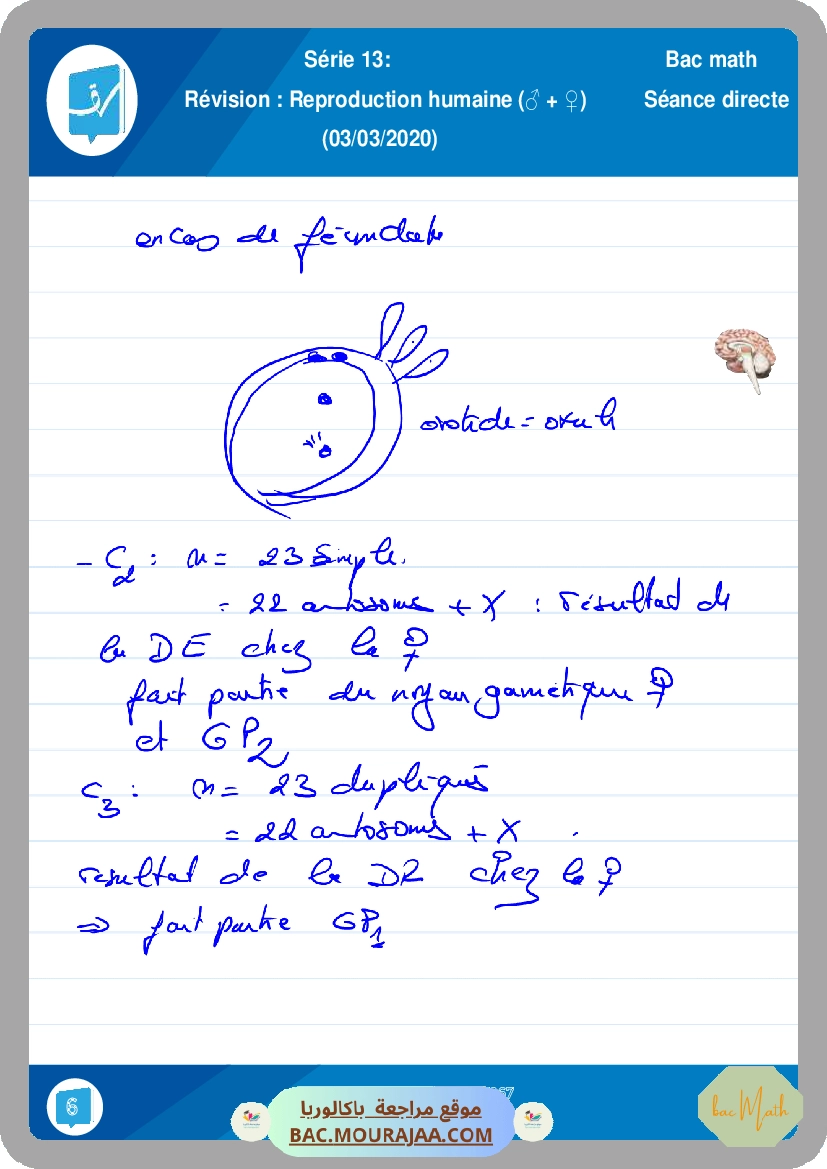 Série 13:
Bac math
Révision : Reproduction humaine (♂ + ♀)
Séance directe
(03/03/2020)
en cas de fécondation
ovotide = ovule
- C2 : n = 23 simple.
= 22 autosomes + X : résultat de
la DE chez la ♀
fait partie du noyau gamétique ♀
et GP2
C3 : n = 23 dupliqués
= 22 autosomes + X
résultat de la DR chez la ♀
⇒ fait partie GP1
6
موقع مراجعة باكالوريا
BAC.MOURAJAA.COM
bac Math